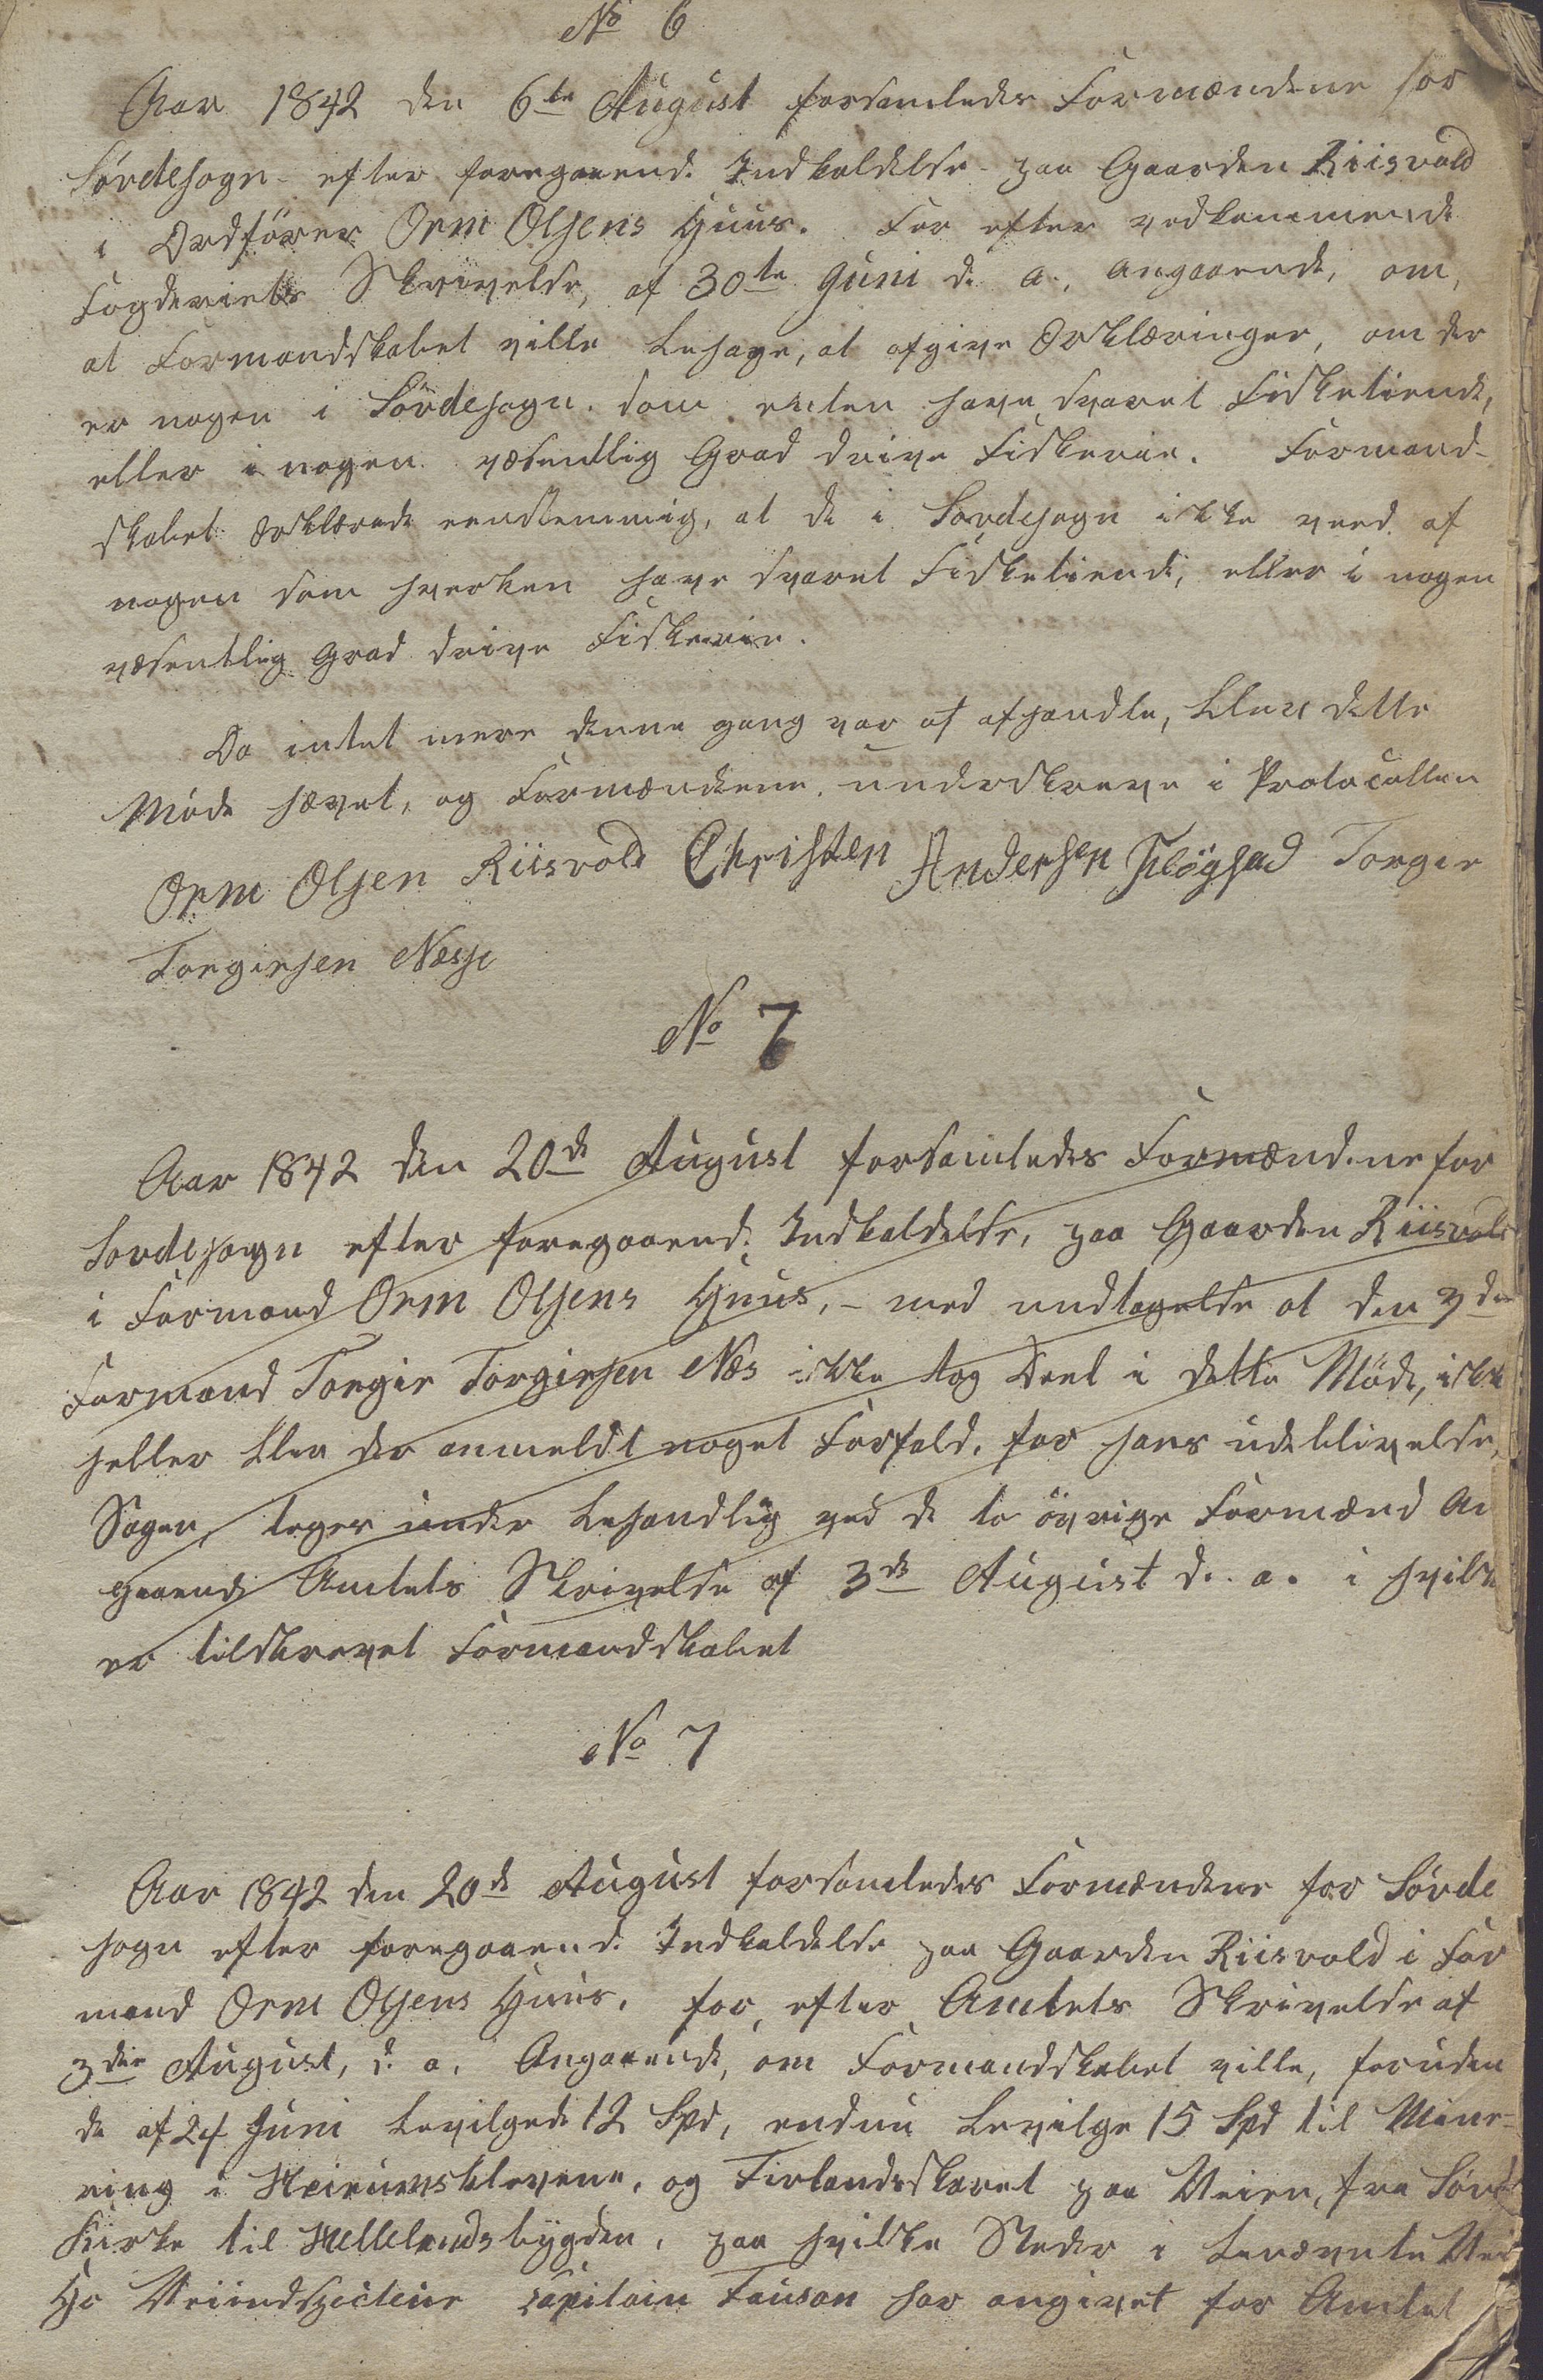 No 6
Aar 1842 den 6te August forsamledes Formændene for
Sørdesogn efter foregaaende Indkaldelse paa Gaarden Riisvold
i Ordfører Orm Olsens Huus. For efter vedkommende
Fogderiets Skrivelse, af 30te Juni d. a. angaaende, om,
at Formandskabet ville behage, at afgive Erklæringer, om der
er nogen i Sørdesogn. som enten have svaret Fisketiende,
eller i nogen væsentlig Grad drive Fiskerie. Formand-
skabet erklærede eenstemmig, at de i Sørdesogn ikke veed af
nogen som hverken have svaret Fisketiende, eller i nogen
væsentlig Grad drive Fiskerie.
Da intet mere denne gang var at afhandle, blev dette
Møde hævet, og Formændene underskreve i Protocollen
Orm Olsen Riisvold Christen Andersen Fløgstad Torger
Torgirsen Næsse
No 7
Aar 1842 den 20de August forsamledes Formændene for
Sørdesogn efter foregaaende Indkaldelse, paa Gaarden Riisvold
i Formand Orm Olsens Huus, - med undtagelse at den 3die
Formand Torgir Torgirsen Næs ikke tog Deel i dette Møde, ikke
heller blev der anmeldt noget Forfald, for hans udeblivelse,
Sagen, toges under behandlig ved de to øvrige Formænd An
gaaende Amtets Skrivelse af 3de August d. a. i hvilke
er tilskrevet Formandskabet
No 7
Aar 1842 den 20de August forsamledes Formændene for Sørde
sogn efter foregaaende Indkaldelse paa Gaarden Riisvold i For
mand Orm Olsens Huus, for, efter Amtets Skrivelse af
3die August, d. a. Angaaende, om Formandskabet ville, foruden
de af 24 Juni bevilgede 12 Spd, endnu bevilge 15 Spd til Mine-
ring i Heirumsklevene, og Tirlandsskaret paa Veien, fra Sørde
Kirke til Hellelandsbygden, paa hvilke Steder i benævnte Vei
Hr Veiindspecteur Capitain Fauson har angivet for Amtet